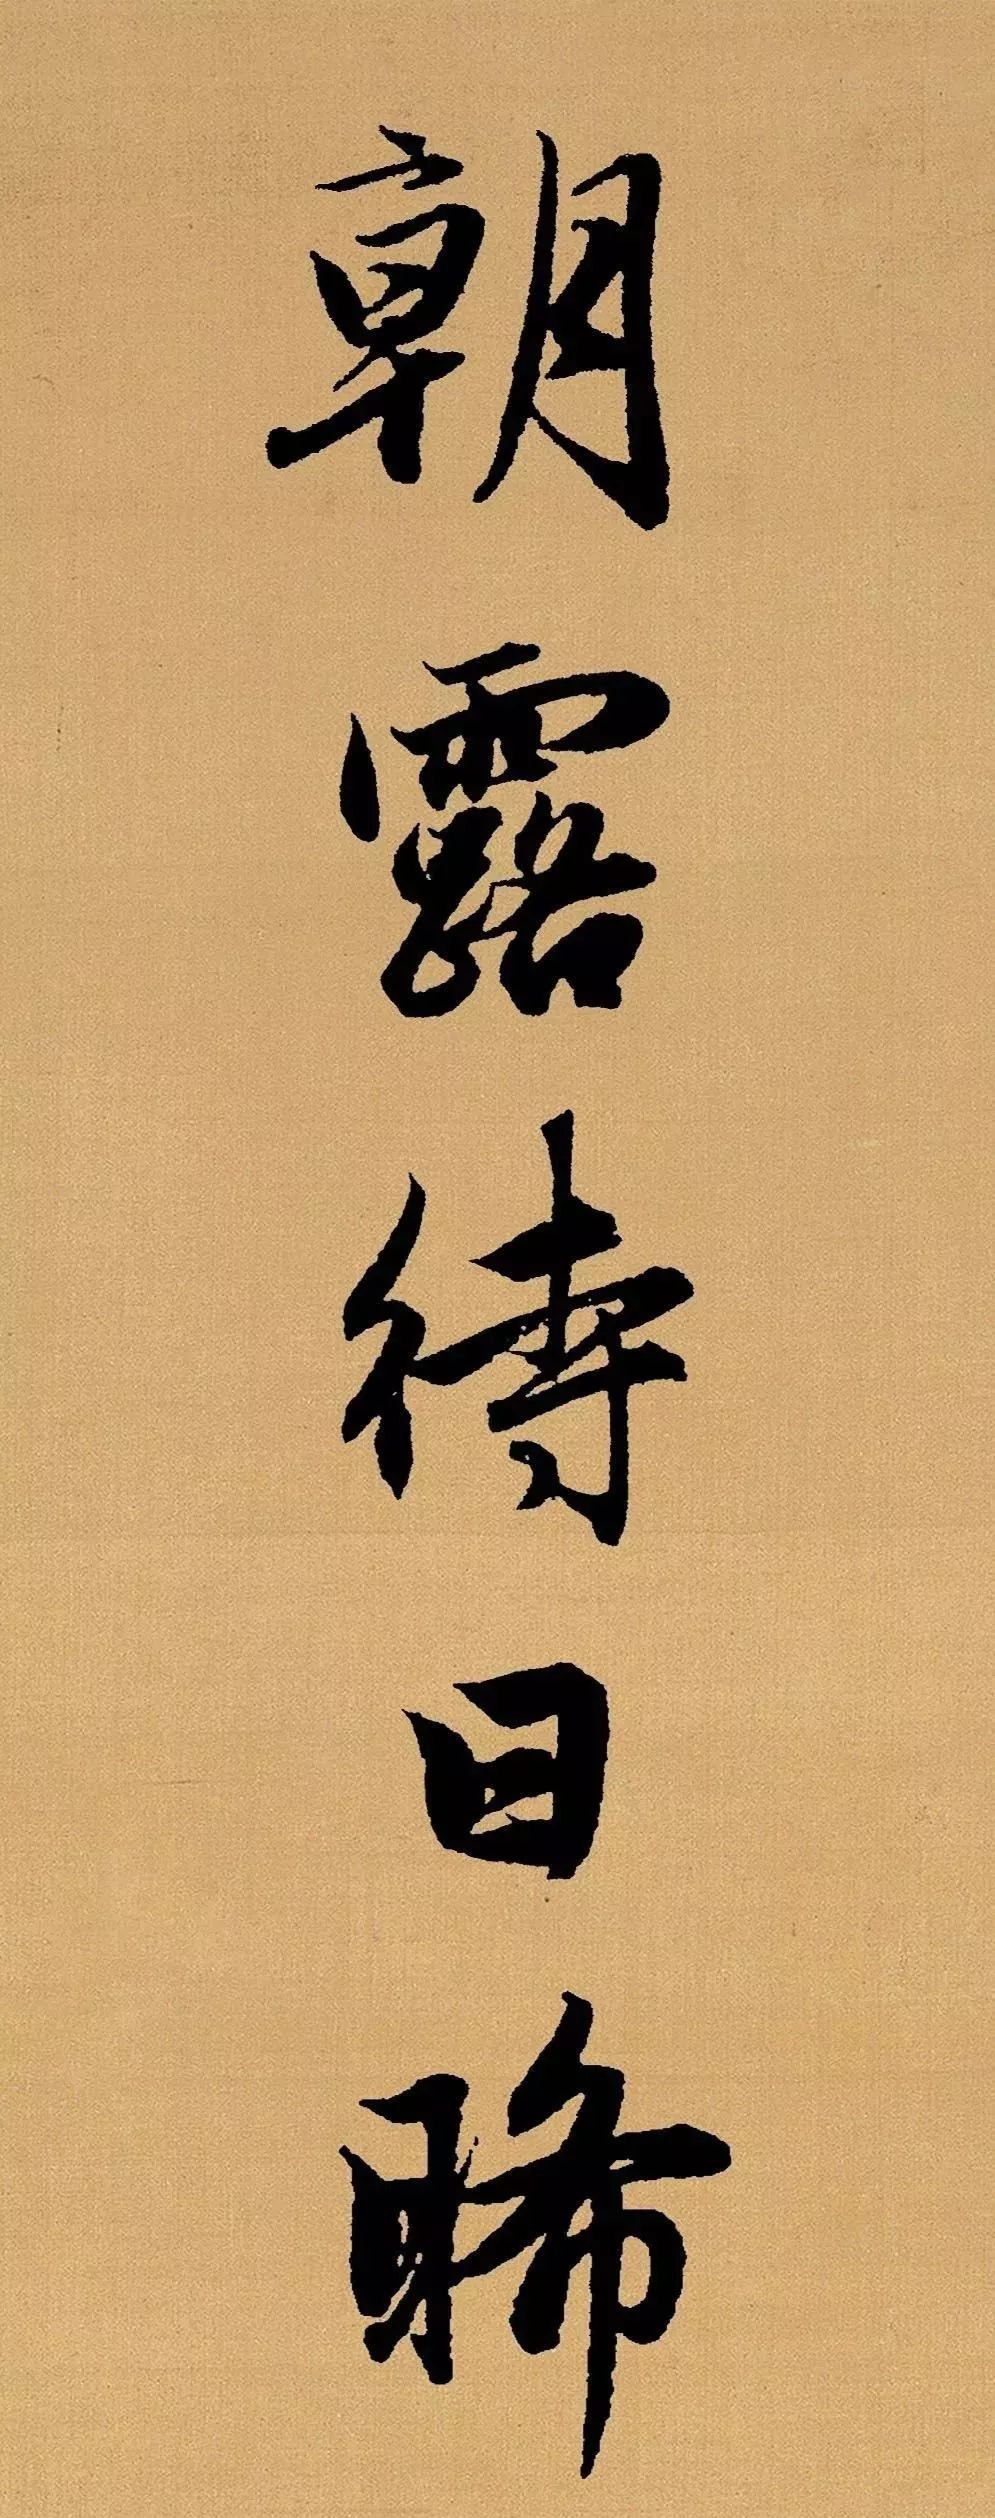 朝露待日晞